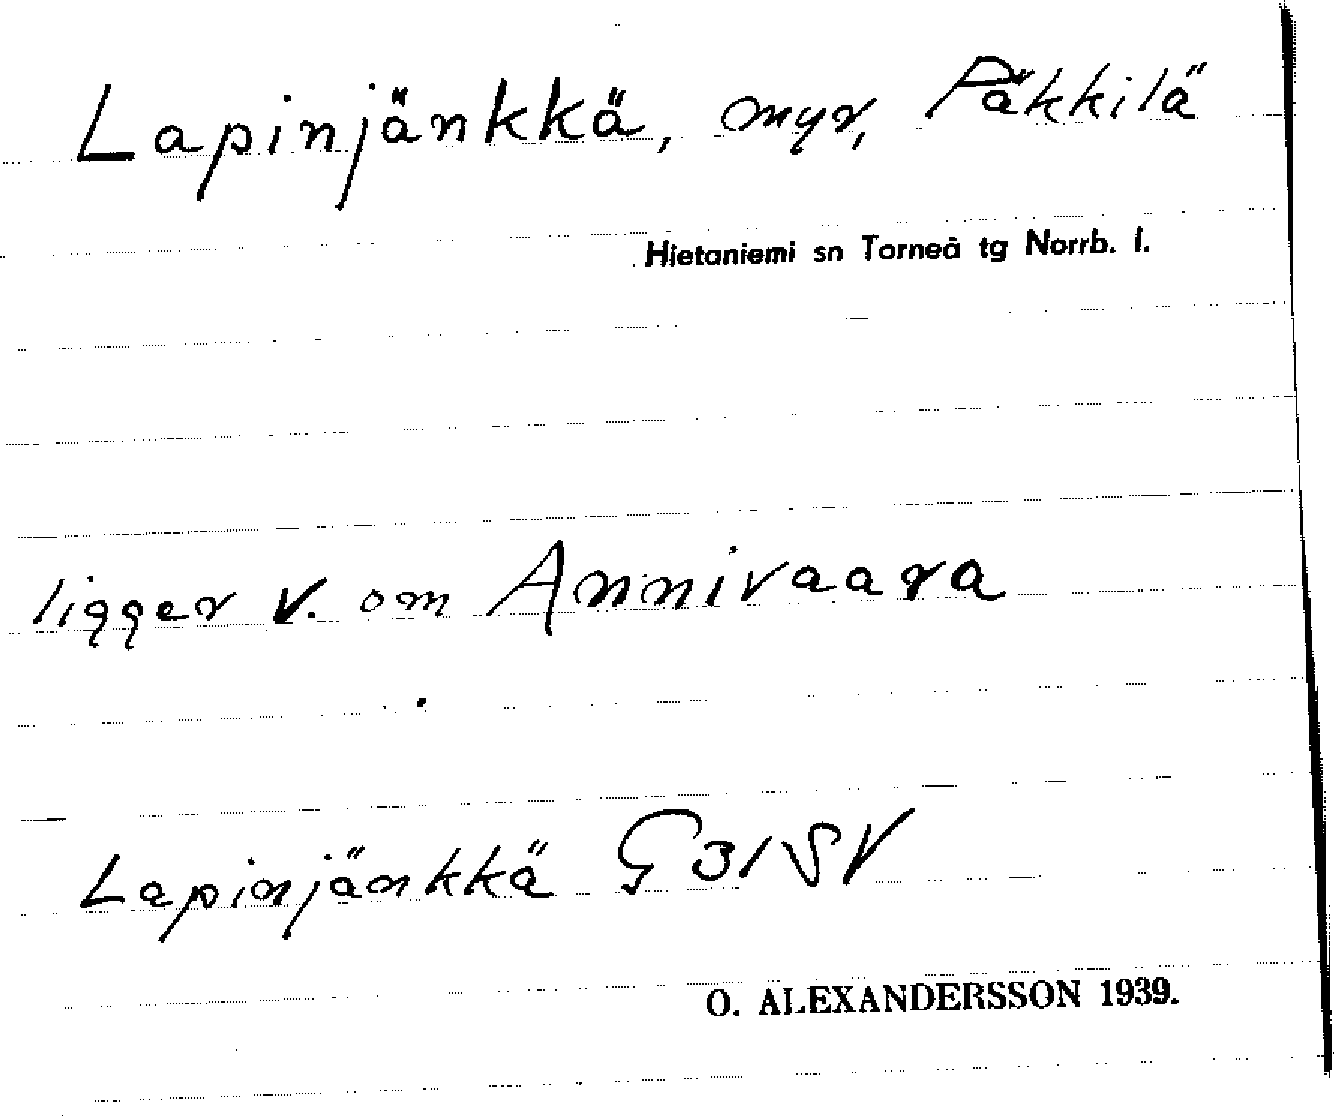 Lapinjänkkä, myr, Päkkilä
Hietaniemi sn Torneå tg Norrb. l.
ligger V. om Annivaara
Lapinjänkkä G 31 SV
O. ALEXANDERSSON 1939.